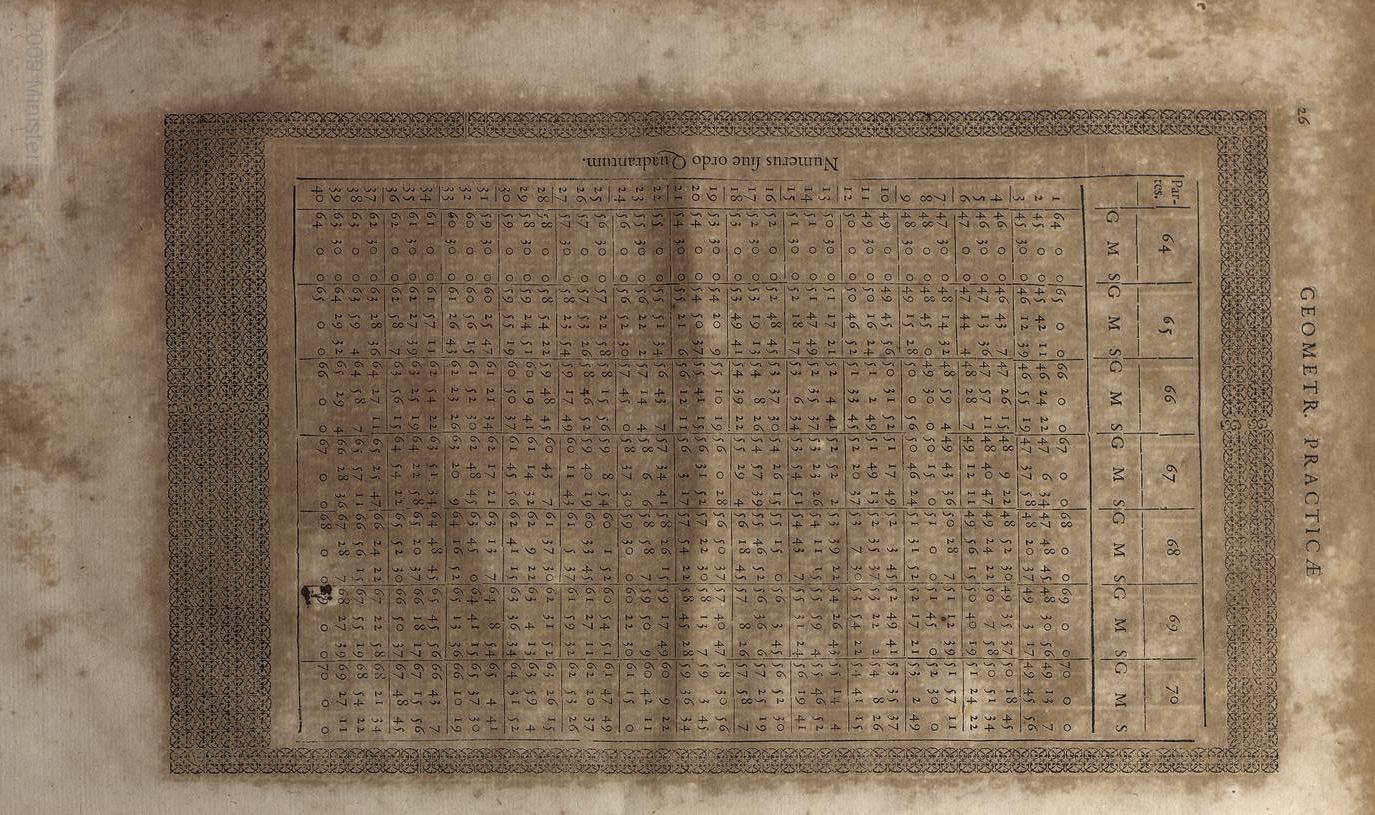 26
GEOMETR. PRACTICÆ
Numerus siue ordo Quadrantum.
Par-
tes. 64 65 66 67 68 69 70
G M S G M S G M S G M S G M S G M S G M S
1 64 0 0 65 0 0 66 0 0 67 0 0 68 0 0 69 0 0 70 0 0
2 45 0 0 45 42 11 46 24 22 47 6 34 47 48 45 48 30 56 49 13 7
3 45 30 0 46 12 39 46 55 19 47 37 58 48 20 37 49 3 17 49 45 56
4 46 0 0 46 43 7 47 26 15 48 9 22 48 52 30 49 35 37 50 18 45
5 46 30 0 47 13 36 47 57 11 48 40 47 49 24 22 50 7 58 50 51 34
6 47 0 0 47 44 4 48 28 7 49 12 11 49 56 15 50 40 19 51 24 22
7 47 30 0 48 14 32 48 59 4 49 43 36 50 28 7 51 12 39 51 57 11
8 48 0 0 48 45 0 49 30 0 50 15 0 51 0 0 51 45 0 52 30 0
9 48 30 0 49 15 28 50 0 56 50 46 24 51 31 52 52 17 21 53 2 49
10 49 0 0 49 45 56 50 31 52 51 17 49 52 3 45 52 49 41 53 35 37
11 49 30 0 50 16 24 51 2 49 51 49 13 52 35 37 53 22 2 54 8 26
12 50 0 0 50 46 52 51 33 45 52 20 37 53 7 30 53 54 22 54 41 15
13 50 30 0 51 17 21 52 4 41 52 52 2 53 39 22 54 26 43 55 14 4
14 51 0 0 51 47 49 52 35 37 53 23 26 54 11 15 54 59 4 55 46 52
15 51 30 0 52 18 17 53 6 34 53 54 51 54 43 7 55 31 24 56 19 41
16 52 0 0 52 48 45 53 37 30 54 26 15 55 15 0 56 3 45 56 52 30
17 52 30 0 53 19 13 54 8 26 54 57 39 55 46 52 56 36 6 57 25 19
18 53 0 0 53 49 41 54 39 22 55 29 4 56 18 45 57 8 26 57 58 7
19 53 30 0 54 20 9 55 10 19 56 0 28 56 50 37 57 40 47 58 30 56
20 54 0 0 54 50 37 55 41 15 56 31 52 57 22 30 58 13 7 59 3 45
21 54 30 0 55 21 6 56 12 11 57 3 17 57 54 22 58 45 28 59 36 34
22 55 0 0 55 51 34 56 43 7 57 34 41 58 26 15 59 17 49 60 9 22
23 55 30 0 56 22 2 57 14 4 58 6 6 58 58 7 59 50 9 60 42 11
24 56 0 0 56 52 30 57 45 0 58 37 30 59 30 0 60 22 30 61 15 0
25 56 30 0 57 22 58 58 15 56 59 8 54 60 1 52 60 54 51 61 47 49
26 57 0 0 57 53 26 58 46 52 59 40 19 60 33 45 61 27 11 62 20 37
27 57 30 0 58 23 54 59 17 49 60 11 43 61 5 37 61 59 32 62 53 26
28 58 0 0 58 54 22 59 48 45 60 43 7 61 37 30 62 31 52 63 26 15
29 58 30 0 59 24 51 60 19 41 61 14 32 62 9 22 63 4 13 63 59 4
30 59 0 0 59 55 19 60 50 37 61 45 56 62 41 15 63 36 34 64 31 52
31 59 30 0 60 25 47 61 21 34 62 17 21 63 13 7 64 8 54 65 4 41
32 60 0 0 60 56 15 61 52 30 62 48 45 63 45 0 64 41 15 65 37 30
33 60 30 0 61 26 43 62 23 26 63 20 9 64 16 52 65 13 36 66 10 19
34 61 0 0 61 57 11 62 54 22 63 51 34 64 48 45 65 45 56 66 43 7
35 61 30 0 62 27 39 63 25 19 64 22 58 65 20 37 66 18 17 67 15 56
36 62 0 0 62 58 7 63 56 15 64 54 22 65 52 30 66 50 37 67 48 45
37 62 30 0 63 28 36 64 27 11 65 25 47 66 24 22 67 22 58 68 21 34
38 63 0 0 63 59 4 64 58 7 65 57 11 66 56 15 67 55 19 68 54 22
39 63 30 0 64 29 32 65 29 4 66 28 36 67 28 7 68 27 39 69 27 11
40 64 0 0 65 0 0 66 0 0 67 0 0 68 0 0 69 0 0 70 0 0